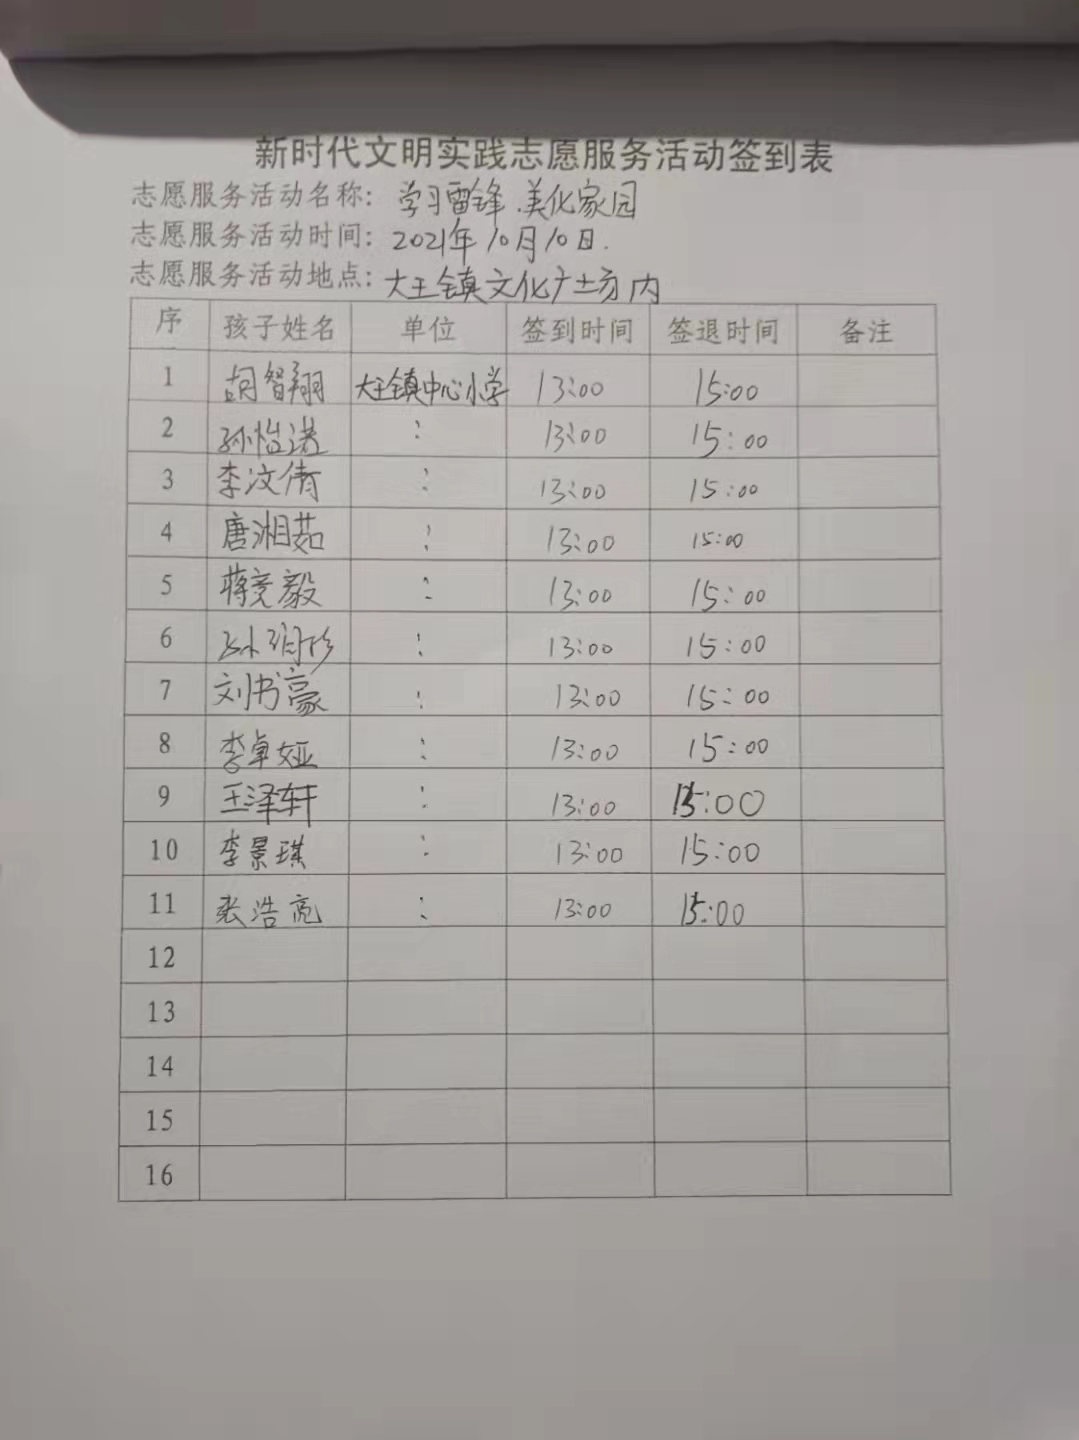 新时代文明实践志愿服务活动签到表
志愿服务活动名称: 学习雷锋.美化家园
志愿服务活动时间: 2021年10月10日.
志愿服务活动地点: 大王镇文化广场内
序 孩子姓名 单位 签到时间 签退时间 备注
1 胡智翔 大王镇中心小学 13:00 15:00
2 孙怡诺 : 13:00 15:00
3 李汶倩 : 13:00 15:00
4 唐湘茹 : 13:00 15:00
5 蒋竞毅 : 13:00 15:00
6 : 13:00 15:00
7 刘书豪 : 13:00 15:00
8 李卓娅 : 13:00 15:00
9 王泽轩 : 13:00 15:00
10 李景琪 : 13:00 15:00
11 张浩亮 : 13:00 15:00
12
13
14
15
16